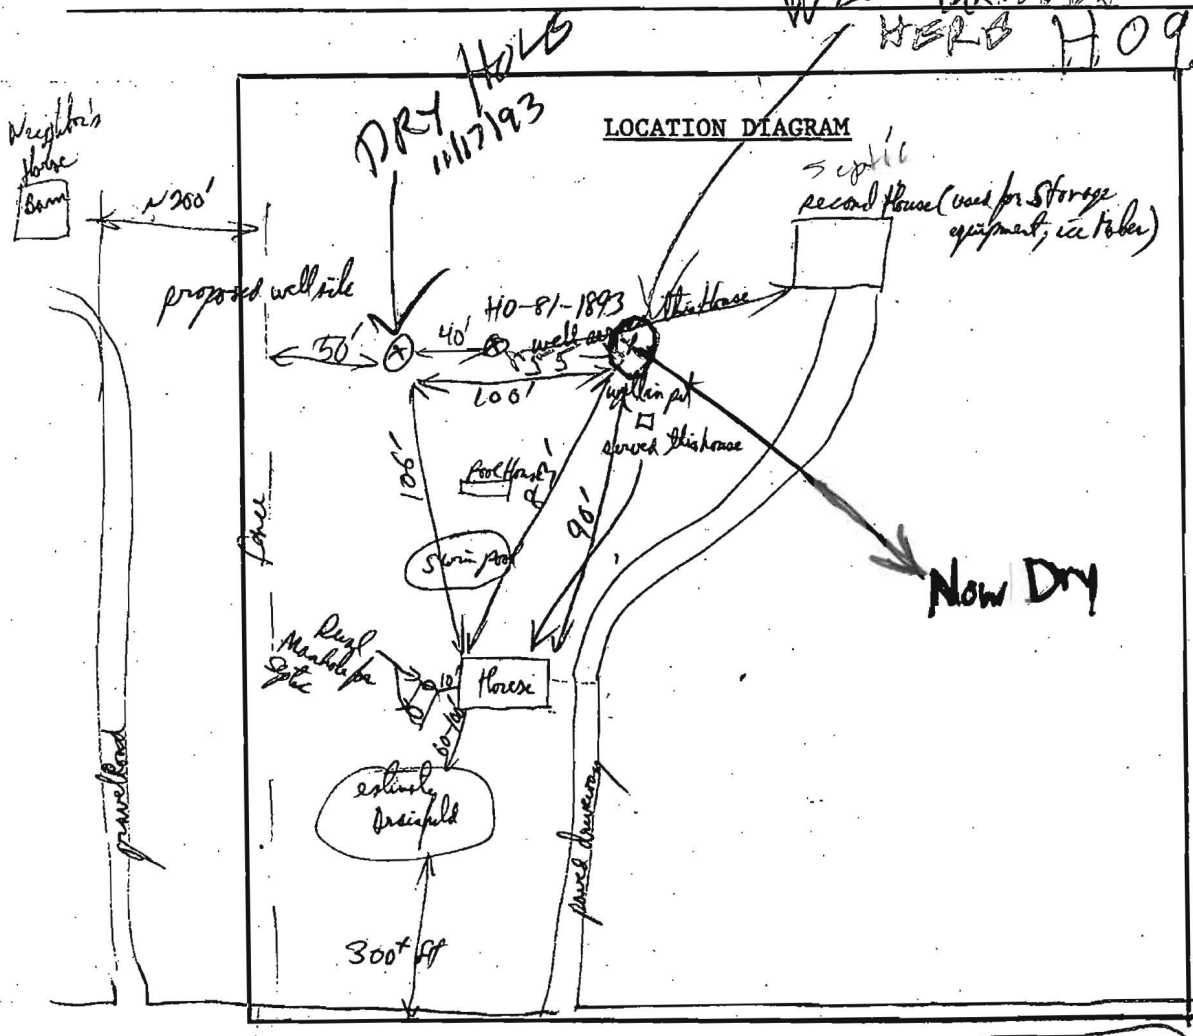 HERB HO9
DRY HOLE
11/17/93
LOCATION DIAGRAM
Neighbor's
House
Barn
~200'
septic
second House (used for Storage
equipment,
proposed well site
HO-81-1893
this House
50'
40'
well
55
100'
well in pit
served this house
106'
Pool House
90'
fence
Swim pool
Now Dry
Manhole for
Septic
10'
House
60-100'
estimate
gravel Road
paved driveway
300+ ft